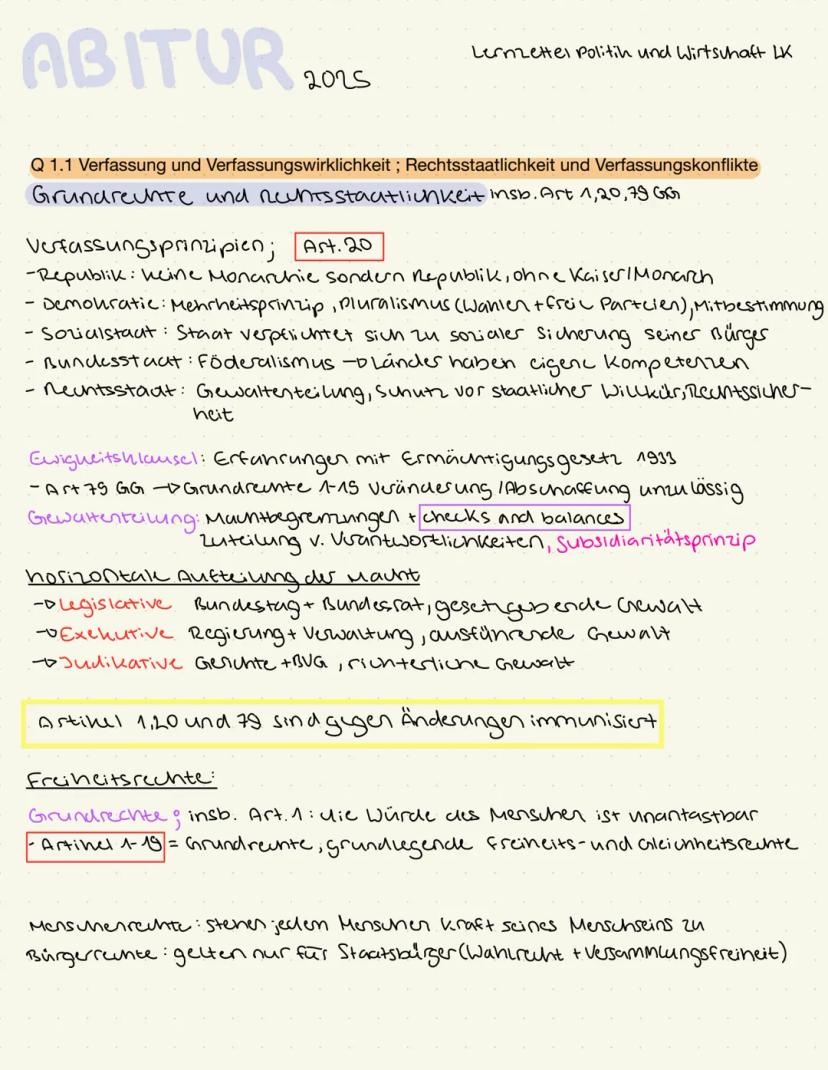 ABITUR 2025
Lernzettel Politik und Wirtschaft LK
Q 1.1 Verfassung und Verfassungswirklichkeit ; Rechtsstaatlichkeit und Verfassungskonflikte
Grundrechte und Rechtsstaatlichkeit insb. Art 1,20,79 GG
Verfassungsprinzipien; Art. 20
-Republik: keine Monarchie sondern Republik, ohne Kaiser/Monarch
- Demokratie: Mehrheitsprinzip, Pluralismus (Wahlen + freie Parteien), Mitbestimmung
- Sozialstaat: Staat verpflichtet sich zu sozialer Sicherung seiner Bürger
- Bundesstaat: Föderalismus → Länder haben eigene Kompetenzen
- Rechtsstaat: Gewaltenteilung, Schutz vor staatlicher Willkür, Rechtssicher-
heit
Ewigkeitsklausel: Erfahrungen mit Ermächtigungsgesetz 1933
- Art 79 GG → Grundrechte 1-19 Veränderung/Abschaffung unzulässig
Gewaltenteilung: Machtbegrenzungen + checks and balances
Zuteilung v. Verantwortlichkeiten, Subsidiaritätsprinzip
horizontale Aufteilung der Macht
→ Legislative Bundestag + Bundesrat, gesetzgebende Gewalt
→ Exekutive Regierung + Verwaltung, ausführende Gewalt
→ Judikative Gerichte + BVG, richterliche Gewalt
Artikel 1,20 und 79 sind gegen Änderungen immunisiert
Freiheitsrechte:
Grundrechte; insb. Art. 1: die Würde des Menschen ist unantastbar
- Artikel 1-19 = Grundrechte, grundlegende Freiheits- und Gleichheitsrechte
Menschenrechte: stehen jedem Menschen kraft seines Menschseins zu
Bürgerrechte: gelten nur für Staatsbürger (Wahlrecht + Versammlungsfreiheit)